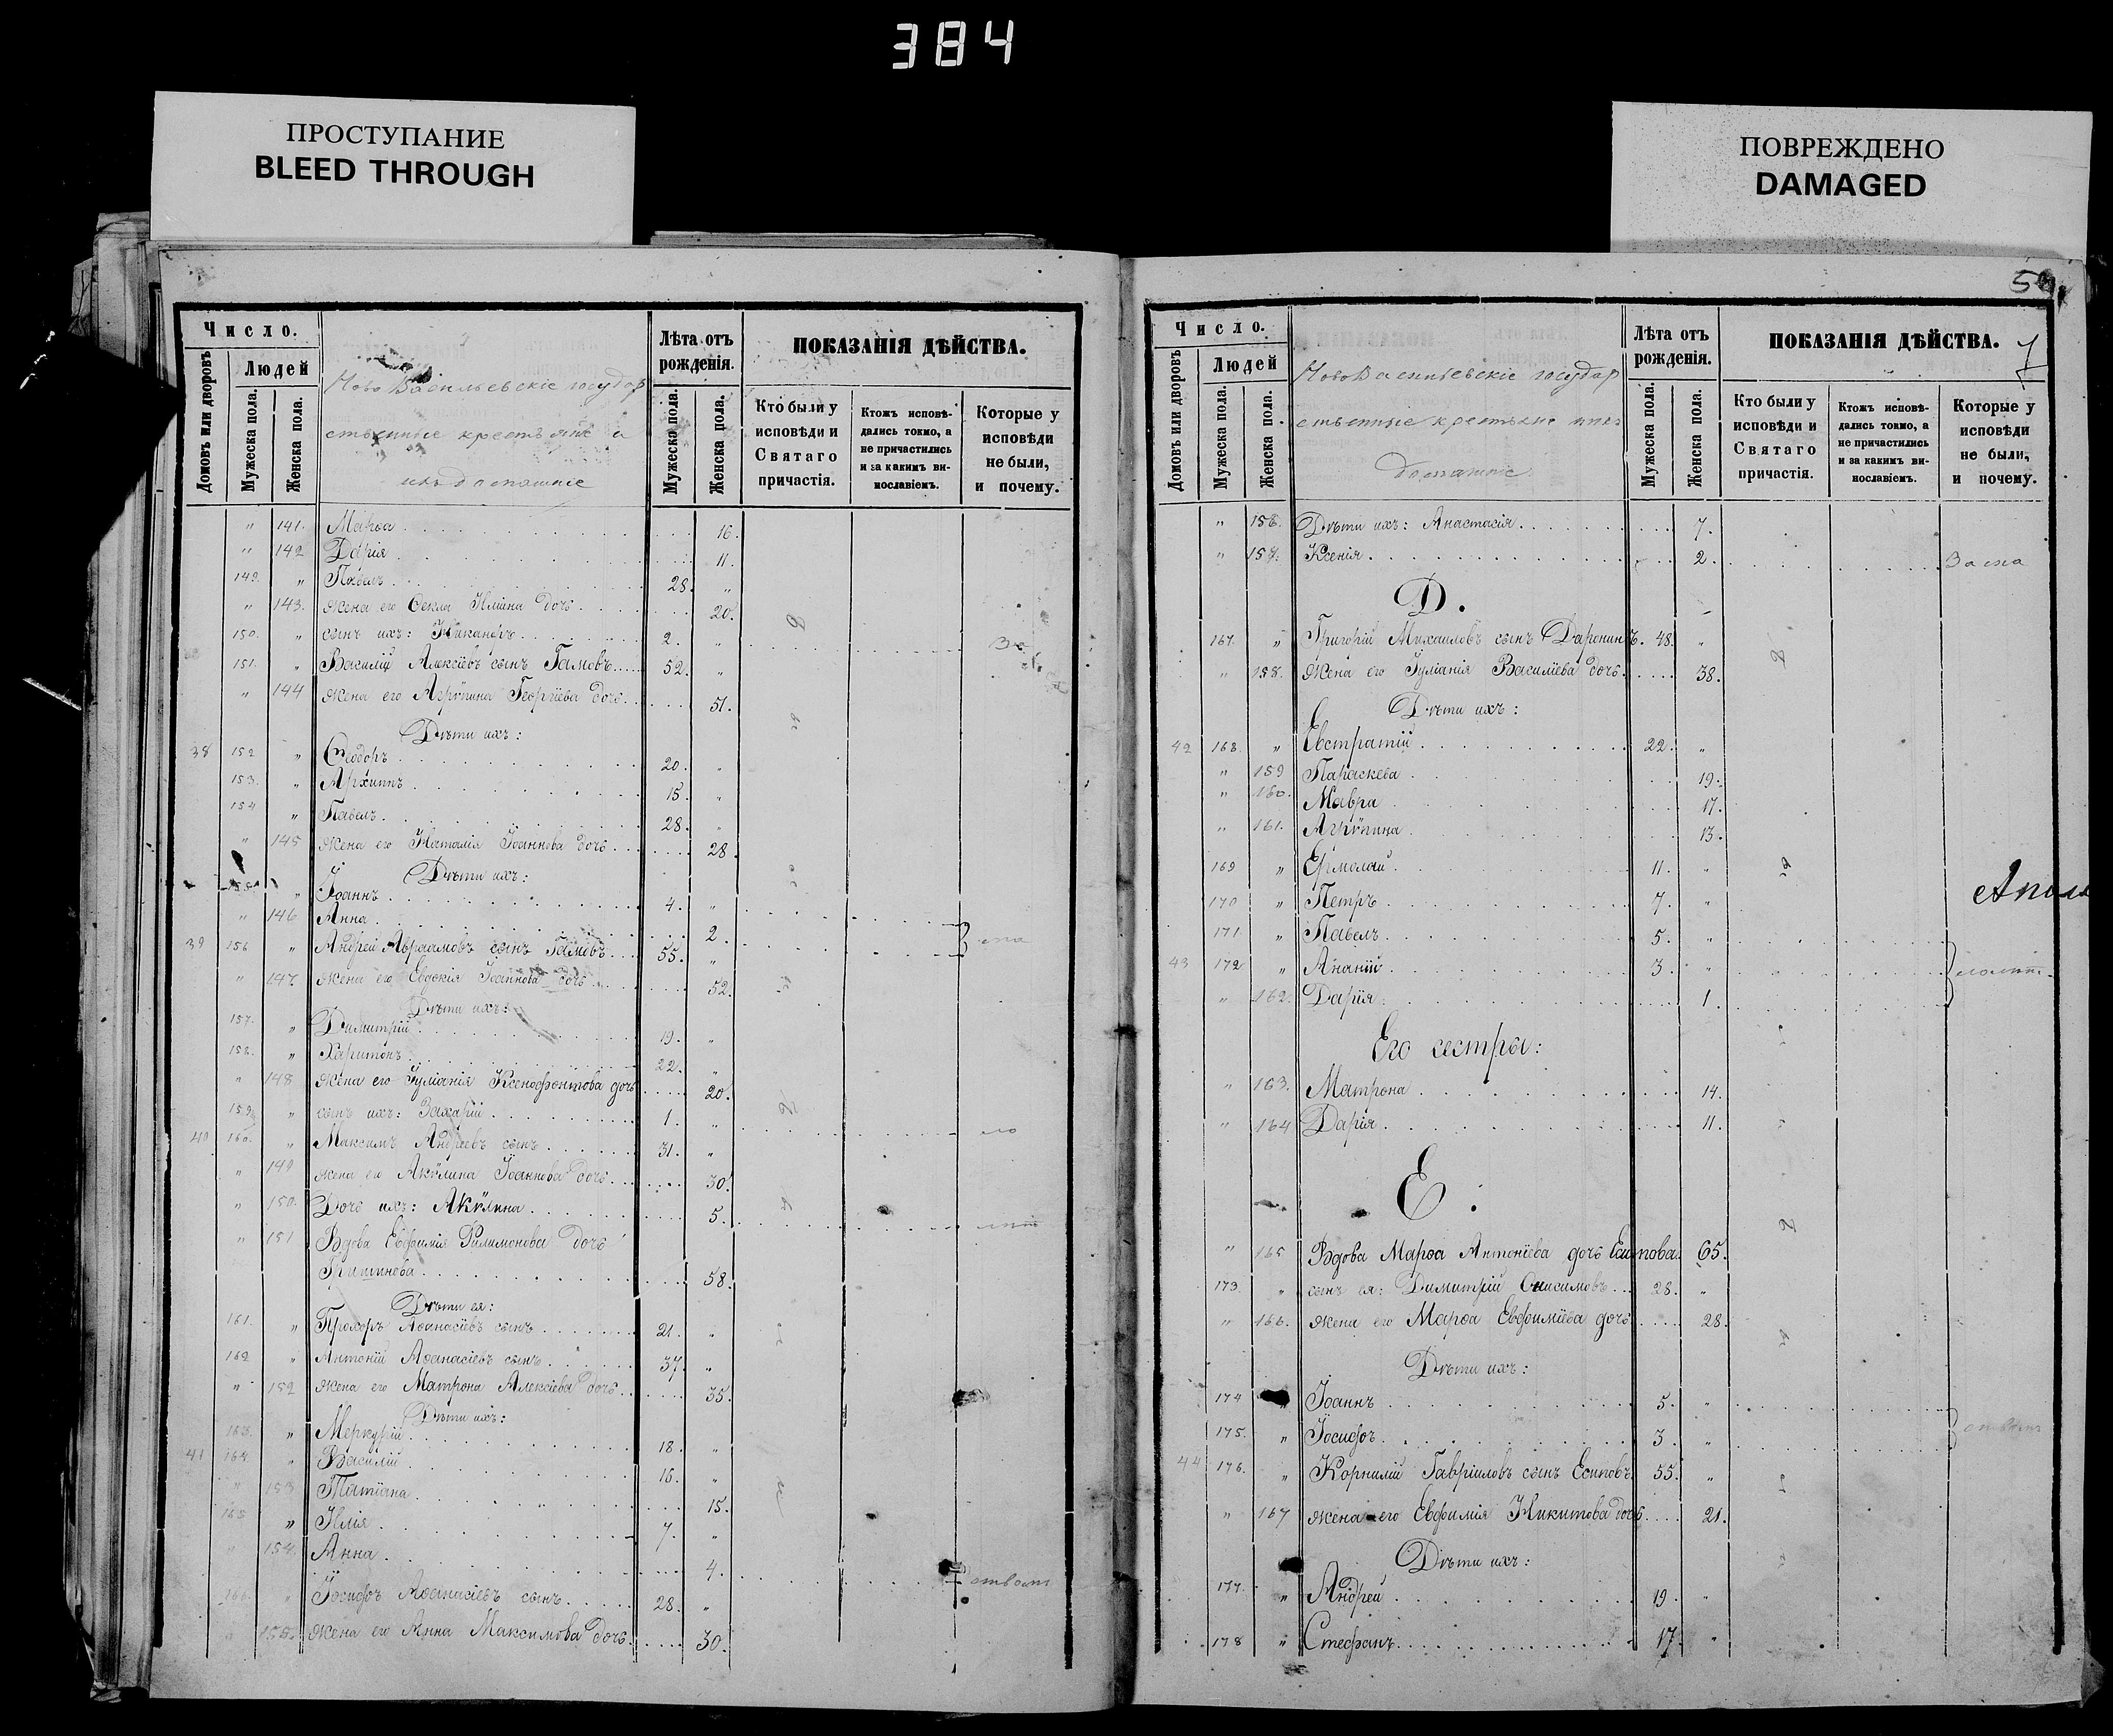 384
ПРОСТУПАНИЕ
BLEED THROUGH
ПОВРЕЖДЕНО
DAMAGED
Число.
Домовъ или дворовъ
Людей
Мужеска пола.
Женска пола.
НовоВасильевскіе государ
ственные крестьяне и
ихъ домашніе
Лѣта отъ рожденія.
Мужеска пола.
Женска пола.
ПОКАЗАНІЯ ДѢЙСТВА.
Кто были у исповѣди и Святаго причастія.
Ктожъ исповѣ-дались токмо, а не причастились и за какимъ ви-нословіемъ.
Которые у исповѣди не были, и почему.
" 141. Марѳа 16.
" 142 Дарія 11.
149. " Павелъ 28. "
" 143. жена его Ѳекла Иліина дочь 20.
150. " сынъ ихъ: Никаноръ 2. "
151. " Василій Алексіевъ сынъ Гамовъ 52. "
" 144 жена его Агрѵпина Георгіева дочь 51.
Дѣти ихъ:
38 152 " Ѳеодоръ 20. "
153. " Архиппъ 15. "
154 " Павелъ 28. "
" 145 жена его Наталія Іоаннова дочь 28.
Дѣти ихъ:
155. " Іоаннъ 4. "
" 146 Анна 2.
39 156 " Андрей Авраамовъ сынъ Гамовъ 55. "
" 147 жена его Евдокія Іоаннова дочь 52.
Дѣти ихъ:
157. " Димитрій 19. "
158. " Харитонъ 22. "
" 148 жена его Іуліанія Ксенофонтова дочь 20.
159. " сынъ ихъ: Захарій 1. "
40 160. " Максимъ Андреевъ сынъ 31. "
" 149 жена его Акѵлина Іоаннова дочь 30.
" 150. Дочь ихъ: Акѵлина 5.
" 151 Вдова Евфимія Филимонова дочь
58.
Дѣти ея:
161. " Прохоръ Аѳанасіевъ сынъ 21. "
162 " Антоній Аѳанасіевъ сынъ 37. "
" 152 жена его Матрона Алексіева дочь 35.
Дѣти ихъ:
163. " Меркурій 18. "
41 164. " Василій 16. "
" 153 Татіана 15.
165 " Илія 7. "
" 154. Анна 4.
166. " Іосифъ Аѳанасіевъ сынъ 28. "
" 155. жена его Анна Максимова дочь 30.
Число.
Домовъ или дворовъ
Людей
Мужеска пола.
Женска пола.
НовоВасильевскіе государ
ственные крестьяне и ихъ
домашніе
Лѣта отъ рожденія.
Мужеска пола.
Женска пола.
ПОКАЗАНІЯ ДѢЙСТВА.
Кто были у исповѣди и Святаго причастія.
Ктожъ исповѣ-дались токмо, а не причастились и за какимъ ви-нословіемъ.
Которые у исповѣди не были, и почему.
" 156. Дѣти ихъ: Анастасія 7.
" 157. Ксенія 2.
Д.
167. " Григорій Михаиловъ сынъ Даронинъ. 48. "
" 158. жена его Іуліанія Василіева дочь 38.
Дѣти ихъ:
42 168. " Евстратій 22. "
" 159 Параскева 19.
" 160. Мавра 17.
" 161. Агрѵпина 13.
169 " Ермолай 11. "
170 " Петръ 7. "
171 " Павелъ 5. "
43 172 " Ананій 3. "
" 162. Дарія 1.
Его сестры:
" 163. Матрона 14.
" 164 Дарія 11.
Е.
" 165 Вдова Марѳа Антоніева дочь Есипова. 65.
173. " сынъ ея: Димитрій Онисимовъ 28. "
" 166. жена его Марѳа Евфиміева дочь 28.
Дѣти ихъ:
174 " Іоаннъ 5. "
175. " Іосифъ 3. "
44 176. " Корнилій Гавріиловъ сынъ Есиповъ 55. "
" 167 жена его Евфимія Никитова дочь 21.
Дѣти ихъ:
177. " Андрей 19. "
178 " Стефанъ 17. "